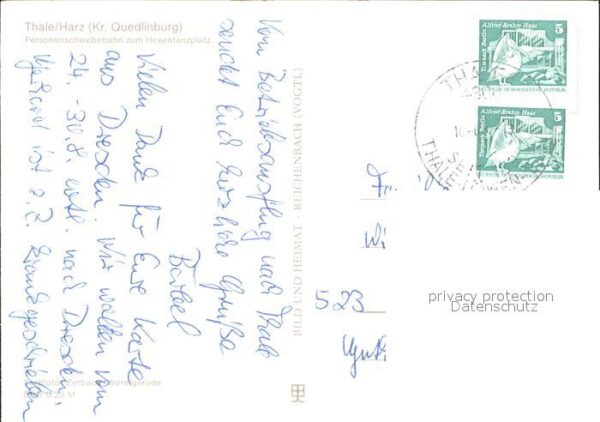 Thale/Harz (Kr. Quedlinburg)
Personenschwebebahn zum Hexentanzplatz
Vom Betriebsausflug nach Thale
sendet Euch herzliche Grüße
Bärbel
Vielen Dank für Eure Karte
aus Dresden. Wir wollen vom
24. - 30.8. evtl. nach Dresden.
ist z.Z. krankgeschrieben
BILD UND HEIMAT · REICHENBACH (VOGTL)
Wernigerode
Alfred Brehm Haus
Tierpark Berlin
5
DEUTSCHE DEMOKRATISCHE REPUBLIK
Alfred Brehm Haus
Tierpark Berlin
5
DEUTSCHE DEMOKRATISCHE REPUBLIK
THALE
523
privacy protection
Datenschutz